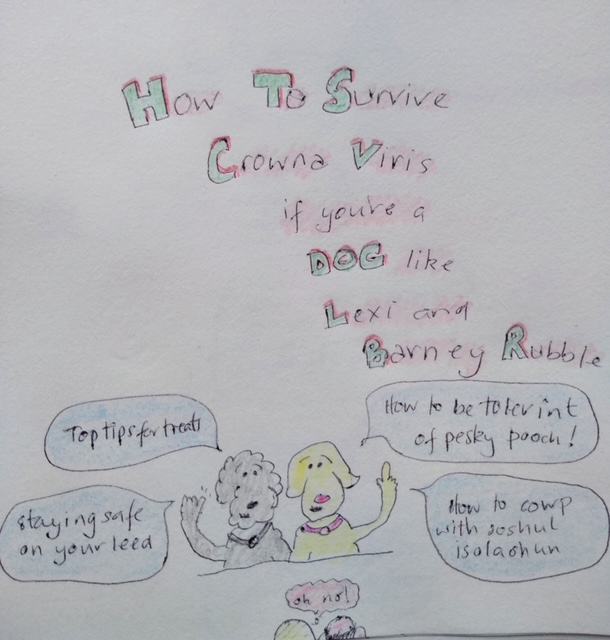 How To Survive
Crowna Viris
if you're a
DOG like
Lexi and
Barney Rubble
Top tips for treats
How to be tolerint
of pesky pooch!
Staying safe
on your leed
How to cowp
with soshul
isolashun
oh no!